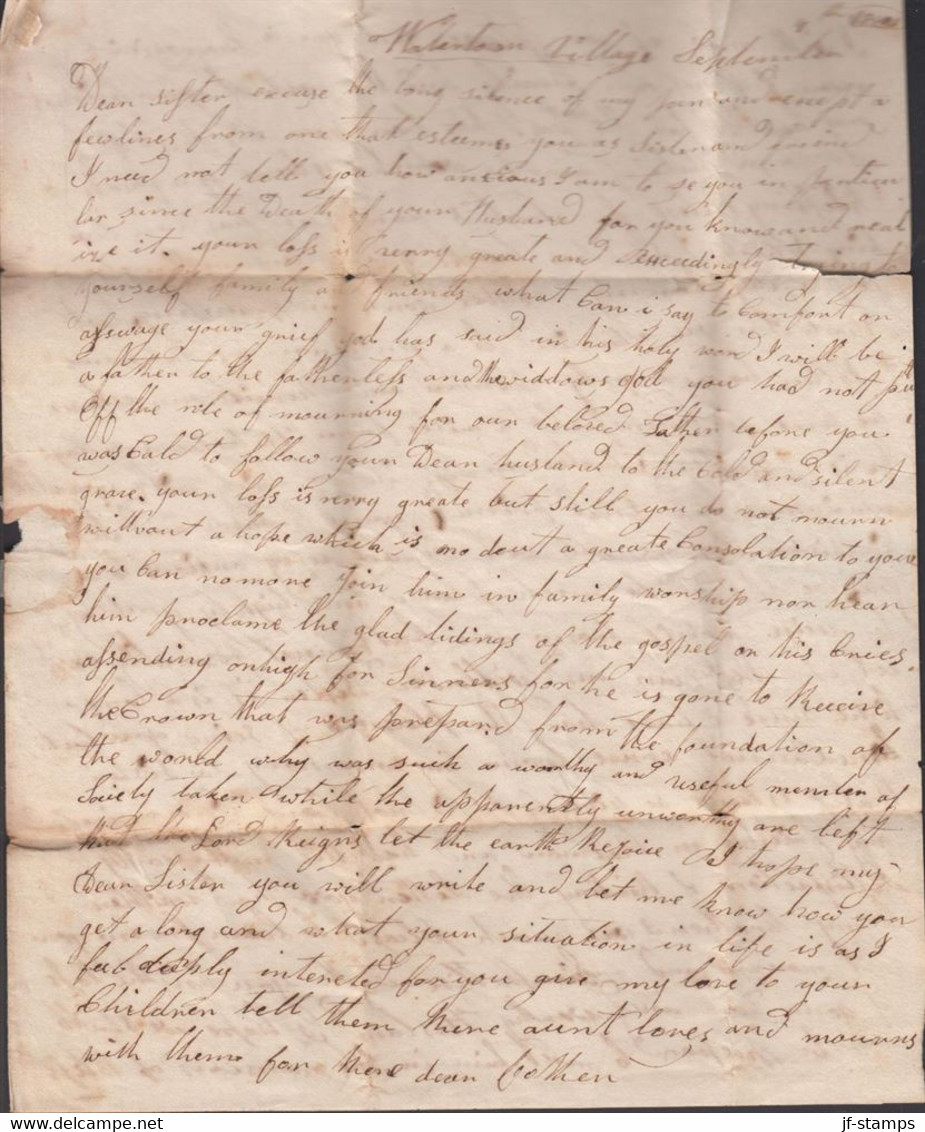 Watertown Village September
Dear Sister excuse the long silence of my pen and except a
few lines from one that esteems you as Sister and friend
I need not tell you how anxious I am to se you in perticu
lar since the Death of your Husband for you know and real
ize it. your loss is verry greate and Exceedingly trying to
yourself family and friends what Can i say to Comfort or
asswage your grief god has said in his holy word I will be
a father to the fatherless and the widdows god you had not put
off the robe of mourning for our beloved Father before you
was Cald to follow your Dear husband to the Cold and silent
grave. your loss is verry greate but still you do not mourn
without a hope which is no dout a greate Consolation to you
you Can no more join him in family worship nor hear
him proclame the glad tidings of the gospel or his Cries
assending on high for Sinners for he is gone to Receive
the Crown that was prepard from the foundation of
the world why was such a worthy and useful member of
Society taken while the apparently unworthy are left
but the Lord Reigns let the earth Rejoice I hope my
Dear Sister you will write and let me know how you
get a long and what your situation in life is as I
feel deeply interested for you give my love to your
Children tell them there aunt loves and mourns
with them for there dear father
jf-stamps